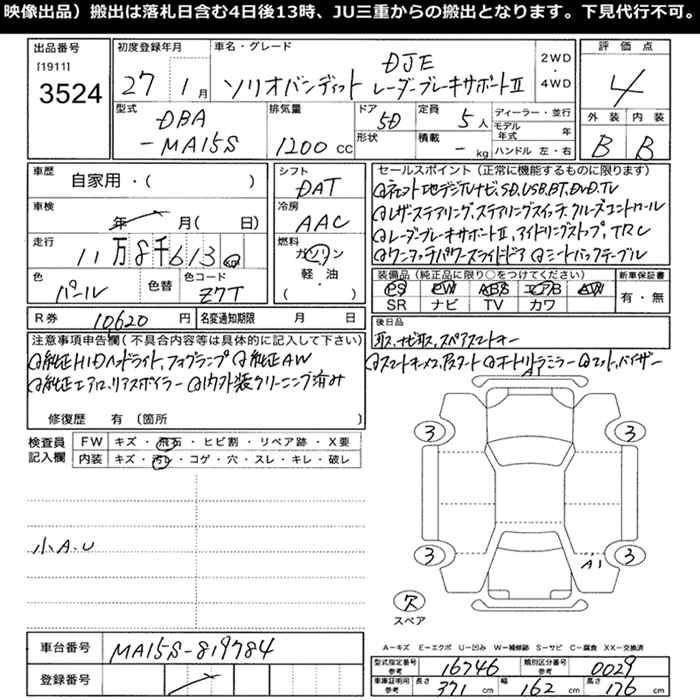 映像出品）搬出は落札日含む4日後13時、JU三重からの搬出となります。下見代行不可。
出品番号
[1911]
3524
初度登録年月
27 1月
車名・グレード
DJE
ソリオバンディット レーダーブレーキサポートII
2WD
・
4WD
評価点
4
外装 内装
B B
型式
DBA
-MA15S
排気量
1200 cc
ドア
5D
形状
定員
5人
積載
- kg
ディーラー・並行
モデル年式 年
ハンドル 左・右
車歴
自家用・( )
車検
年 月( 日)
走行
11万8千613
色
パール
色替
色コード
Z7T
シフト
DAT
冷房
AAC
燃料
ガソリン
軽・油
( )
セールスポイント（正常に機能するものに限ります）
レザーステアリング、ステアリングスイッチ、クルーズコントロール
レーダーブレーキサポートII、アイドリングストップ、TRC
ワンタッチパワースライドドア シートバックテーブル
装備品（純正品に限り○をつけてください）
PS PW ABS エアB AW
SR ナビ TV カワ
新車保証書
有・無
R券 10,620 円
名変通知期限 月 日
後日品
注意事項申告欄（不具合内容等は具体的に記入して下さい）
純正HIDヘッドライト、フォグランプ 純正AW
純正エアロ、リアスポイラー 内外装クリーニング済み
修復歴 有〔箇所 〕
検査員記入欄
FW キズ・飛石・ヒビ割・リペア跡・X要
内装 キズ・汚レ・コゲ・穴・スレ・キレ・破レ
小A.U
A1
3 3
3 3
A1
欠
スペア
車台番号 MA15S-819784
登録番号
A＝キズ E＝エクボ U＝凹み W＝補修跡 S＝サビ C＝腐食 XX＝交換済
型式指定番号参考 16746 類別区分番号参考 0029
車庫証明用参考 長さ 371 cm 幅 162 cm 高さ 176 cm